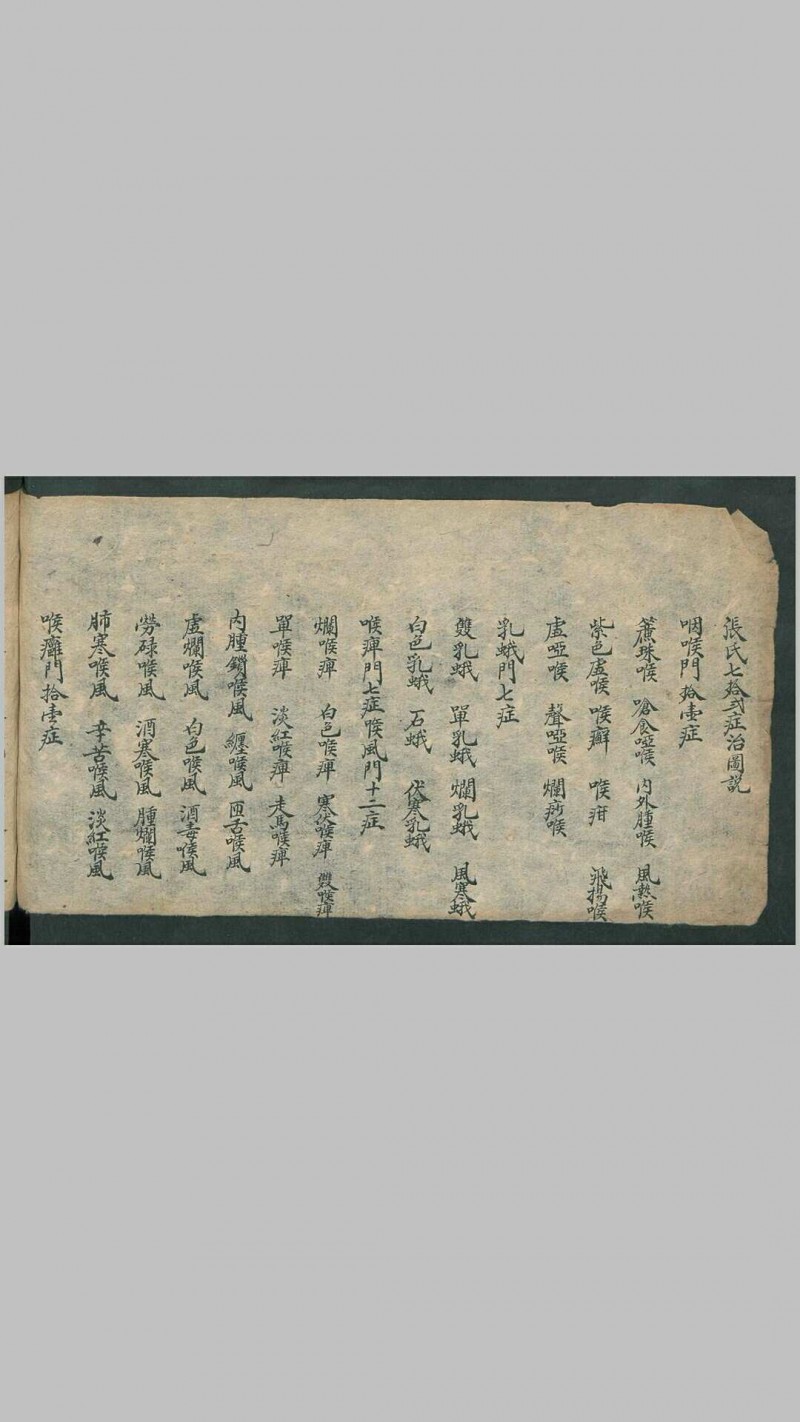 張氏七拾弍症治圖說
咽喉門拾壹症
蔗珠喉 嗆食啞喉 內外腫喉 風熱喉
紫色虛喉 喉癬 喉疳 飛揚喉
虛啞喉 聲啞喉 爛喉
乳蛾門七症
雙乳蛾 單乳蛾 爛乳蛾 風寒蛾
白色乳蛾 石蛾 伏寒乳蛾
喉痺門七症喉風門十二症
爛喉痺 白色喉痺 寒伏喉痺 雙喉痺
單喉痺 淡紅喉痺 走馬喉痺
內腫鎖喉風 纏喉風 匝舌喉風
虛爛喉風 白色喉風 酒毒喉風
勞碌喉風 酒寒喉風 腫爛喉風
肺寒喉風 辛苦喉風 淡紅喉風
喉癰門拾壹症